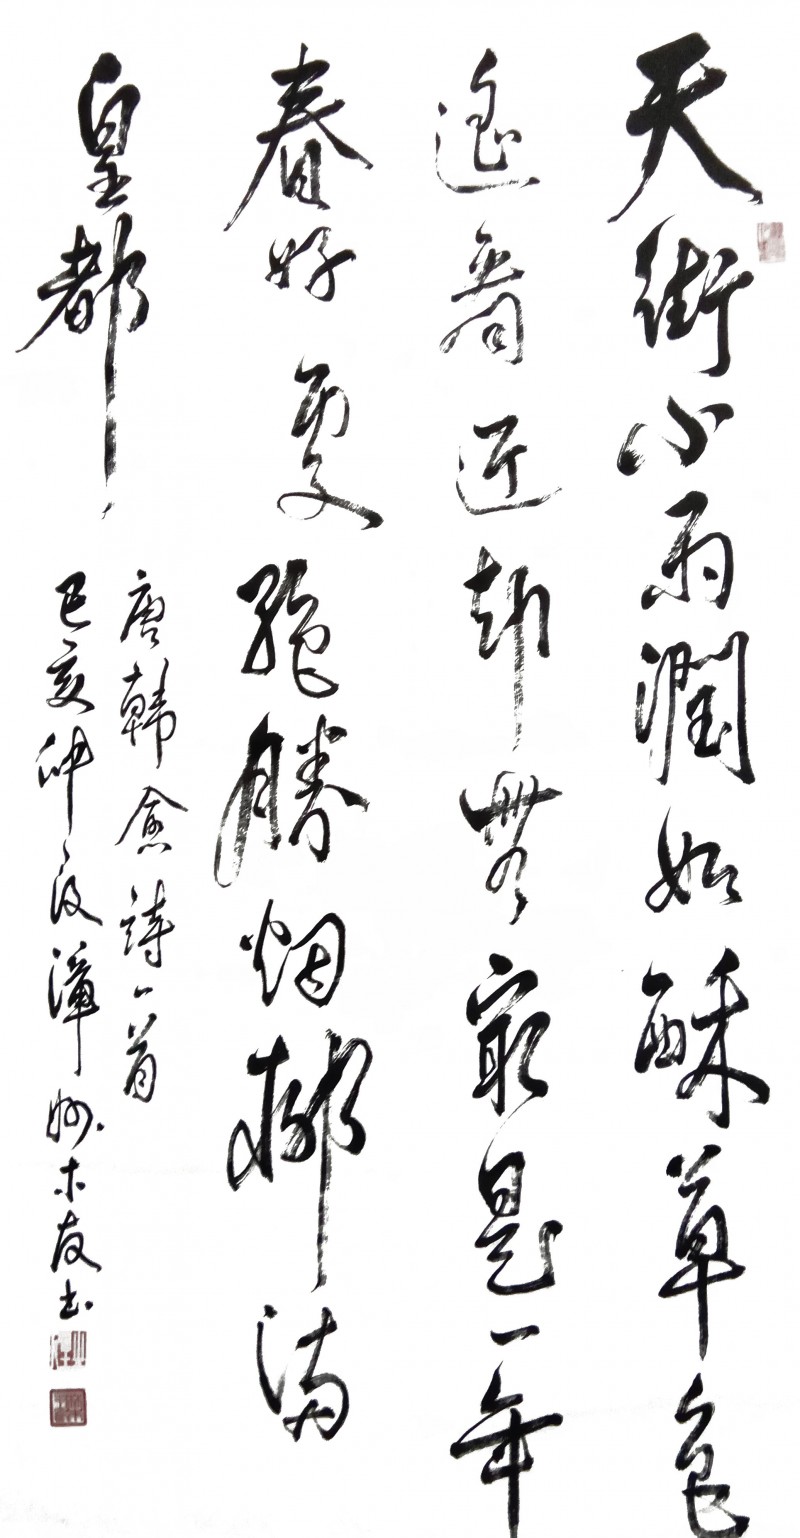 天街小雨潤如酥草色
遙看近却無最是一年
春好處絕勝烟柳滿
皇都
唐韓愈詩一首
己亥仲夏漳州木友书